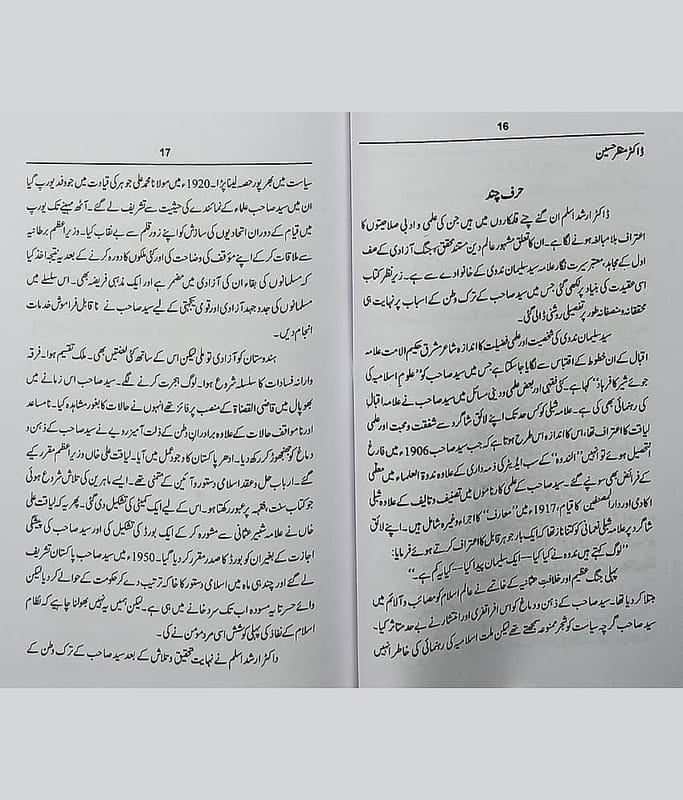 16
ڈاکٹر منظر حسین
حرف چند
ڈاکٹر ارشد اسلم ان گنے چنے قلمکاروں میں ہیں جن کی علمی و ادبی صلاحیتوں کا
اعتراف بلا مبالغہ ہونے لگا ہے۔ ان کا تعلق مشہور عالم دین مستند محقق، جنگ آزادی کے صف
اول کے مجاہد، معتبر سیرت نگار علامہ سید سلیمان ندوی کے خانوادے سے ہے۔ زیر نظر کتاب
اسی عقیدت کی بنیاد پر لکھی گئی جس میں سید صاحب کے ترک وطن کے اسباب پر نہایت ہی
محققانہ و منصفانہ طور پر تفصیلی روشنی ڈالی گئی۔
سید سلیمان ندوی کی شخصیت اور علمی فضیلت کا اندازہ شاعر مشرق حکیم الامت علامہ
اقبال کے ان خطوط کے اقتباس سے لگایا جا سکتا ہے جس میں سید صاحب کو ”علوم اسلامیہ کی
جوئے شیر کا فرہاد“ کہا ہے۔ کئی فقہی اور بعض علمی و دینی مسائل میں سید صاحب نے علامہ اقبال
کی رہنمائی بھی کی ہے۔ علامہ شبلی کو کس حد تک اپنے لائق شاگرد سے شفقت و محبت اور علمی
لیاقت کا اعتراف تھا، اس کا اندازہ اس طرح ہوتا ہے کہ جب سید صاحب 1906ء میں فارغ
التحصیل ہوئے تو انہیں ”الندوہ“ کے سب ایڈیٹر کی ذمہ داری کے علاوہ ندوۃ العلماء میں معلمی
کے فرائض بھی سونپے گئے۔ سید صاحب کے علمی کارناموں میں تصنیف و تالیف کے علاوہ شبلی
اکادمی اور دار المصنفین کا قیام، 1917ء میں ”معارف“ کا اجراء وغیرہ شامل ہیں۔ اپنے لائق
شاگرد پر علامہ شبلی نعمانی کو کتنا ناز تھا کہ ایک بار جوہر قابل کا اعتراف کرتے ہوئے فرمایا:
”لوگ کہتے ہیں ندوہ نے کیا کیا۔ ایک سلیمان پیدا کیا۔ کیا یہ کم ہے۔“
پہلی جنگ عظیم اور خلافت عثمانیہ کے خاتمے نے عالم اسلام کو مصائب و آلائم میں
مبتلا کر دیا تھا۔ سید صاحب کے ذہن و دماغ کو اس افراتفری اور انتشار نے بے حد متاثر کیا۔
سید صاحب گرچہ سیاست کو شجر ممنوعہ سمجھتے تھے لیکن ملت اسلامیہ کی رہنمائی کی خاطر انہیں
17
سیاست میں بھرپور حصہ لینا پڑا۔ 1920ء میں مولانا محمد علی جوہر کی قیادت میں جو وفد یورپ گیا
ان میں سید صاحب علماء کے نمائندے کی حیثیت سے تشریف لے گئے۔ آٹھ مہینے تک یورپ
میں قیام کے دوران اتحادیوں کی سازش کو اپنے زور قلم سے بے نقاب کیا۔ وزیر اعظم برطانیہ
سے ملاقات کر کے اپنے مؤقف کی وضاحت کی اور کئی ملکوں کا دورہ کرنے کے بعد یہ نتیجہ اخذ کیا
کہ مسلمانوں کی بقاء ان کی آزادی میں مضمر ہے اور ایک مذہبی فریضہ بھی۔ اس سلسلے میں
مسلمانوں کی جدوجہد آزادی اور قومی یکجہتی کے لیے سید صاحب نے ناقابل فراموش خدمات
انجام دیں۔
ہندوستان کو آزادی تو ملی لیکن اس کے ساتھ کئی لعنتیں بھی۔ ملک تقسیم ہوا۔ فرقہ
وارانہ فسادات کا سلسلہ شروع ہوا۔ لوگ ہجرت کرنے لگے۔ سید صاحب اس زمانے میں
بھوپال میں قاضی القضاۃ کے منصب پر فائز تھے انہوں نے حالات کا بغور مشاہدہ کیا۔ نامساعد
اور ناموافق حالات کے علاوہ برادران وطن کے ذلت آمیز رویے نے سید صاحب کے ذہن و
دماغ کو جھنجھوڑ کر رکھ دیا۔ ادھر پاکستان کا وجود عمل میں آیا۔ لیاقت علی خاں وزیر اعظم مقرر کیے
گئے۔ ارباب حل و عقد اسلامی دستور و آئین کے متمنی تھے۔ ایسے ماہرین کی تلاش شروع ہوئی
جو کتاب سنت، فقہہ پر عبور رکھتا ہو۔ اس کے لیے ایک کمیٹی کی تشکیل دی گئی۔ پھر یہ کہ لیاقت علی
خاں نے علامہ شبیر عثمانی سے مشورہ کر کے ایک بورڈ کی تشکیل کی اور سید صاحب کی پیشگی
اجازت کے بغیر ان کو بورڈ کا صدر مقرر کر دیا گیا۔ 1950ء میں سید صاحب پاکستان تشریف
لے گئے اور چند ہی ماہ میں اسلامی دستور کا خاکہ ترتیب دے کر حکومت کے حوالے کر دیا لیکن
وائے حسرتا یہ مسودہ اب تک سرد خانے میں ہی ہے۔ لیکن ہمیں یہ نہیں بھولنا چاہیے کہ نظام
اسلام کے نفاذ کی پہلی کوشش اسی مرد مومن نے کی۔
ڈاکٹر ارشد اسلم نے نہایت تحقیق و تلاش کے بعد سید صاحب کے ترک وطن کے